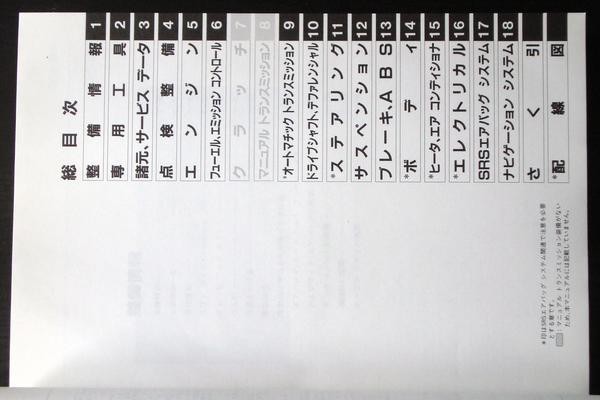 総目次
整備情報 1
専用工具 2
諸元、サービス データ 3
点検整備 4
エンジン 5
フューエル、エミッション コントロール 6
クラッチ 7
マニュアル トランスミッション 8
*オートマチック トランスミッション 9
ドライブシャフト、デファレンシャル 10
*ステアリング 11
サスペンション 12
ブレーキ、ABS 13
*ボディ 14
*ヒータ、エア コンディショナ 15
*エレクトリカル 16
SRSエアバッグ システム 17
ナビゲーション システム 18
さくいん引
*配線図
*印はSRSエアバッグ システム関連で注意を必要
とする章です。
:マニュアル トランスミッション装備がない
ため、本マニュアルには記載していません。